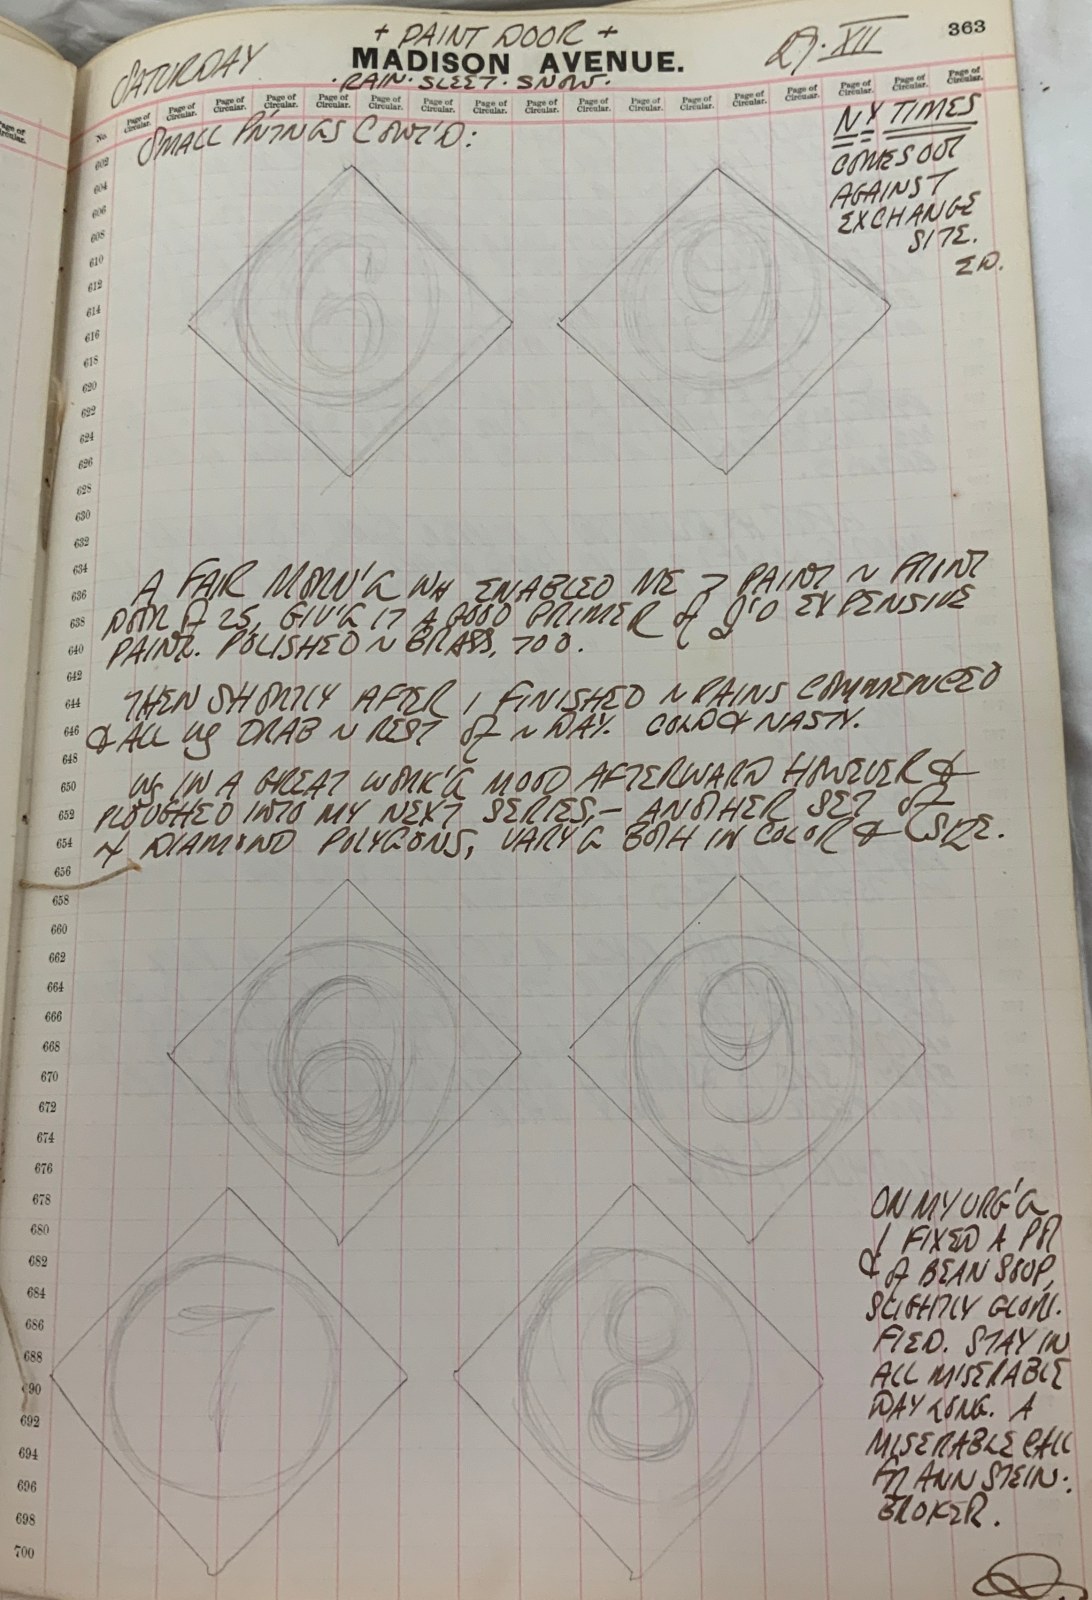 + PAINT DOOR +
SATURDAY
MADISON AVENUE.
27·XII
363
·RAIN·SLEET·SNOW·
No.
Page of Circular. Page of Circular. Page of Circular. Page of Circular. Page of Circular. Page of Circular. Page of Circular. Page of Circular. Page of Circular. Page of Circular. Page of Circular. Page of Circular. Page of Circular. Page of Circular. Page of Circular. Page of Circular. Page of Circular.
SMALL PNTNGS CONT'D:
NY TIMES
COMES OUT
AGAINST
EXCHANGE
SITE.
ED.
602
604
606
608
610
612
614
616
618
620
622
624
626
628
630
632
634
636
638
640
642
644
646
648
650
652
654
656
658
660
662
664
666
668
670
672
674
676
678
680
682
684
686
688
690
692
694
696
698
700
6
9
A FAIR MORN'G WH ENABLED ME TO PAINT ~ FRONT
DOOR OF 25, GIV'G IT A GOOD PRIMER OF G'D EXPENSIVE
PAINT. POLISHED ~ BRASS, TOO.
THEN SHORTLY AFTER I FINISHED ~ RAINS COMMENCED
& ALL WS DRAB ~ REST OF ~ DAY. COLD & NASTY.
WS IN A GREAT WORK'G MOOD AFTERWARD HOWEVER &
PLOUGHED INTO MY NEXT SERIES,– ANOTHER SET OF
~ DIAMOND POLYGONS, VARY'G BOTH IN COLOR & SIZE.
6
9
7
8
ON MY URG'G
I FIXED A POT
OF BEAN SOUP,
SLIGHTLY GLORI-
FIED. STAY IN
ALL MISERABLE
DAY LONG. A
MISERABLE CALL
FM ANN STEIN:
BROKER.